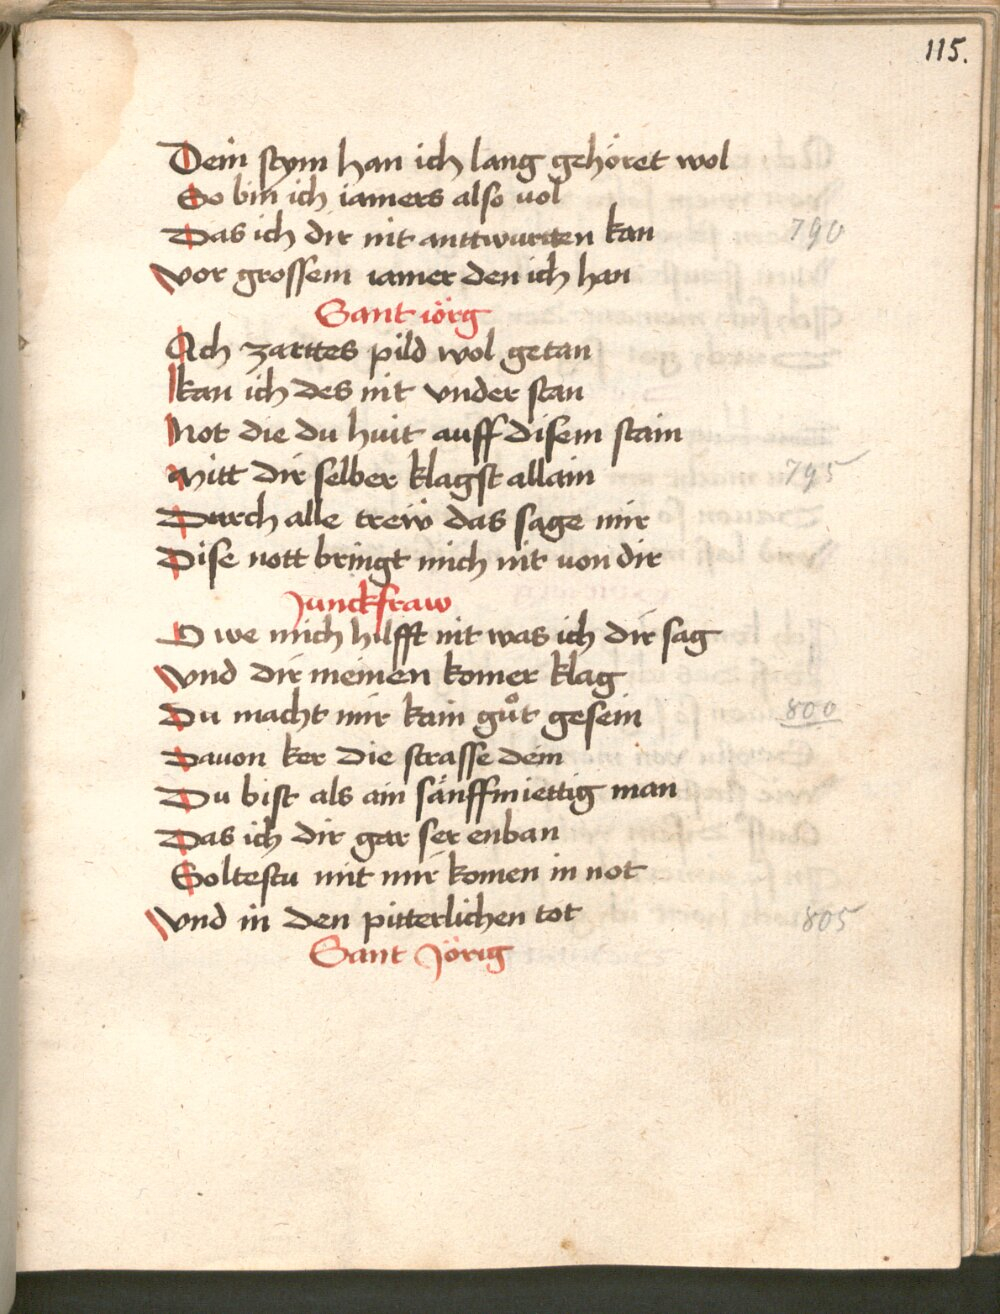 115.
Dein stym han ich lang gehöret wol
So bin ich iamers also uol
Das ich dir nit anttwurtten kan 790
Vor grossem iamer den ich han
Sant iörg
Ach zarttes pild wol getan
kan ich des nit vnder stan
Not die du huit auff disem stain
Mitt dir selber klagst allain 795
Durch alle trew das sage mir
Dise nott bringt mich nit von dir
Junckfraw
O we mich hilfft nit was ich dir sag
Vnd dir meinen komer klag
Du macht mir kain gůt gesein 800
Dauon ker die strasse dein
Du bist als ain sänffmiettig man
Das ich dir gar ser enban
Soltestu mit mir komen in not
Vnd in den pitterlichen tot 805
Sant Jörig